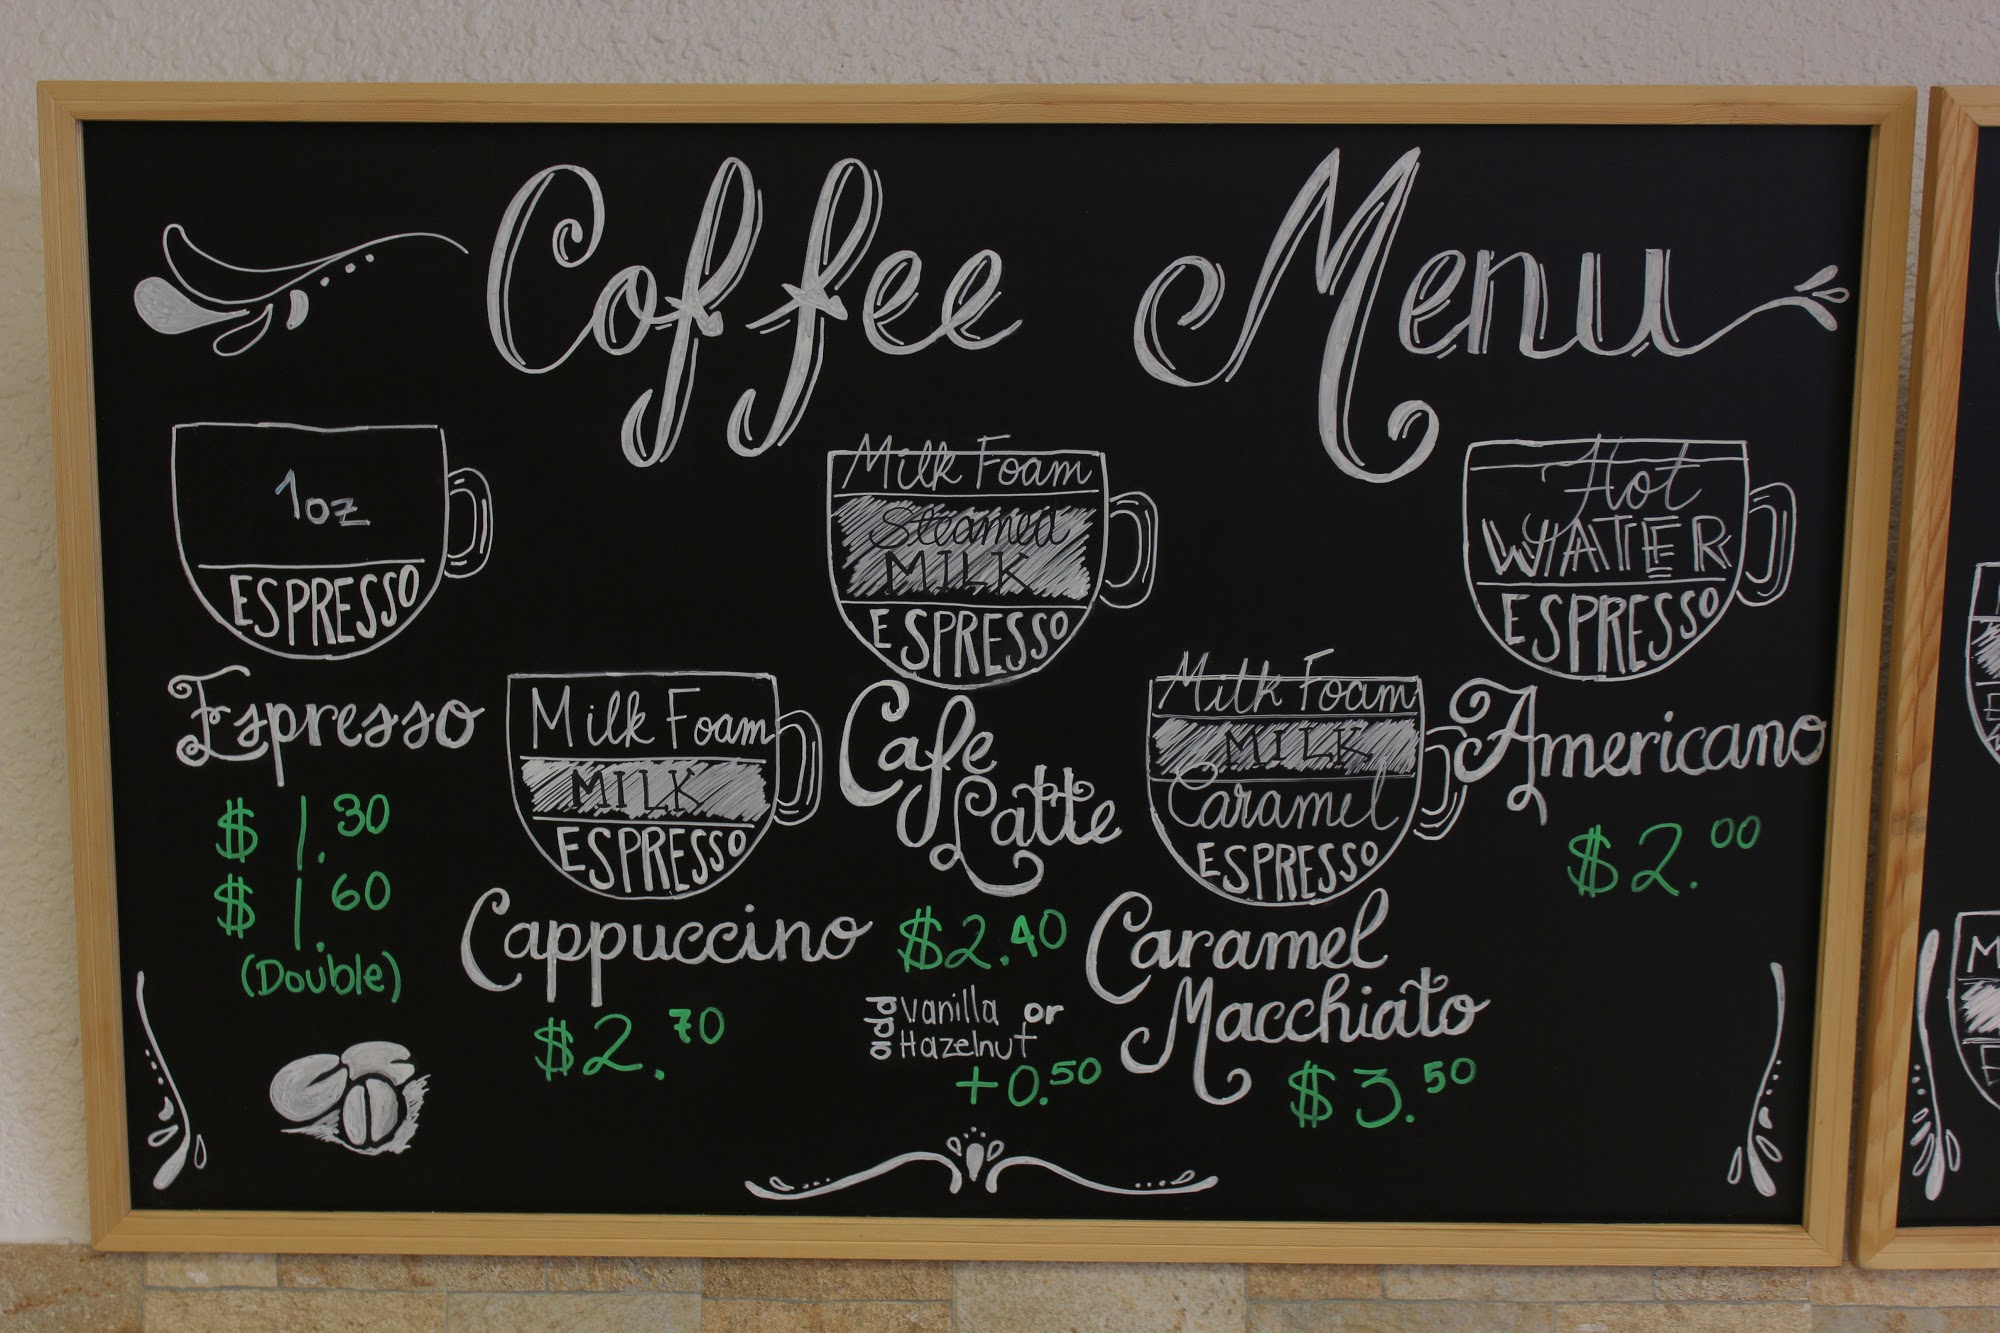 Coffee Menu
1oz
ESPRESSO
Espresso
$ 1.30
$ 1.60
(Double)
Milk Foam
MILK
ESPRESSO
Cappuccino
$2.70
Milk Foam
Steamed
MILK
ESPRESSO
Cafe
Latte
$2.40
add Vanilla or
Hazelnut
+0.50
Milk Foam
MILK
Caramel
ESPRESSO
Caramel
Macchiato
$3.50
Hot
WATER
ESPRESSO
Americano
$2.00